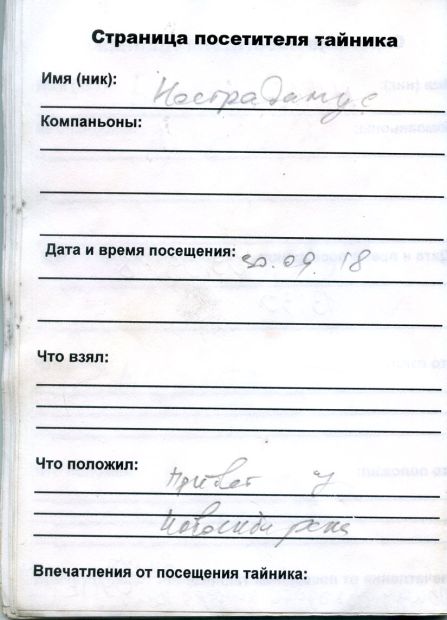 Страница посетителя тайника
Имя (ник): Нострадамус
Компаньоны:
Дата и время посещения: 30.09.18
Что взял:
Что положил: Привет из
Новосибирска
Впечатления от посещения тайника: